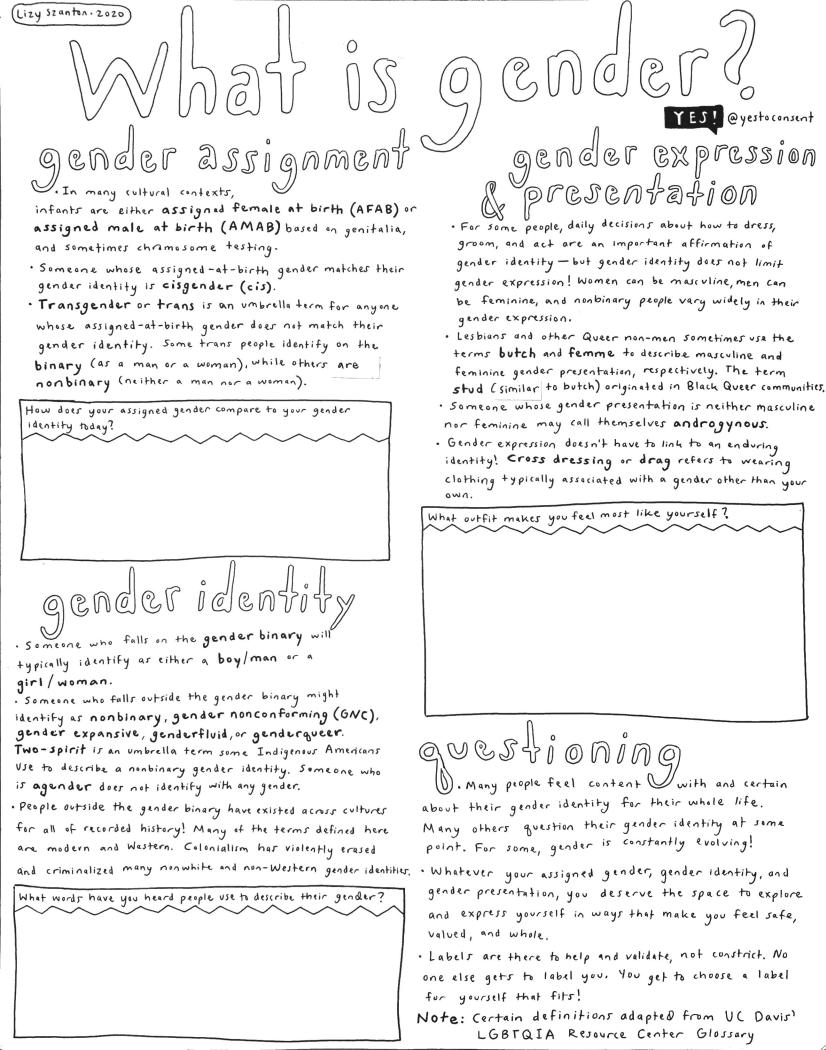 Lizy Szanton · 2020
What is gender?
YES! @yestoconsent
gender assignment
• In many cultural contexts,
infants are either assigned female at birth (AFAB) or
assigned male at birth (AMAB) based on genitalia,
and sometimes chromosome testing.
• Someone whose assigned-at-birth gender matches their
gender identity is cisgender (cis).
• Transgender or trans is an umbrella term for anyone
whose assigned-at-birth gender does not match their
gender identity. Some trans people identify on the
binary (as a man or a woman), while others are
nonbinary (neither a man nor a woman).
How does your assigned gender compare to your gender
identity today?
gender identity
• Someone who falls on the gender binary will
typically identify as either a boy/man or a
girl/woman.
• Someone who falls outside the gender binary might
identify as nonbinary, gender nonconforming (GNC),
gender expansive, genderfluid, or genderqueer.
Two-spirit is an umbrella term some Indigenous Americans
use to describe a nonbinary gender identity. Someone who
is agender does not identify with any gender.
• People outside the gender binary have existed across cultures
for all of recorded history! Many of the terms defined here
are modern and Western. Colonialism has violently erased
and criminalized many nonwhite and non-Western gender identities.
What words have you heard people use to describe their gender?
gender expression
& presentation
• For some people, daily decisions about how to dress,
groom, and act are an important affirmation of
gender identity — but gender identity does not limit
gender expression! Women can be masculine, men can
be feminine, and nonbinary people vary widely in their
gender expression.
• Lesbians and other Queer non-men sometimes use the
terms butch and femme to describe masculine and
feminine gender presentation, respectively. The term
stud (similar to butch) originated in Black Queer communities.
• Someone whose gender presentation is neither masculine
nor feminine may call themselves androgynous.
• Gender expression doesn't have to link to an enduring
identity! Cross dressing or drag refers to wearing
clothing typically associated with a gender other than your
own.
What outfit makes you feel most like yourself?
questioning
• Many people feel content with and certain
about their gender identity for their whole life.
Many others question their gender identity at some
point. For some, gender is constantly evolving!
• Whatever your assigned gender, gender identity, and
gender presentation, you deserve the space to explore
and express yourself in ways that make you feel safe,
valued, and whole.
• Labels are there to help and validate, not constrict. No
one else gets to label you. You get to choose a label
for yourself that fits!
Note: Certain definitions adapted from UC Davis'
LGBTQIA Resource Center Glossary